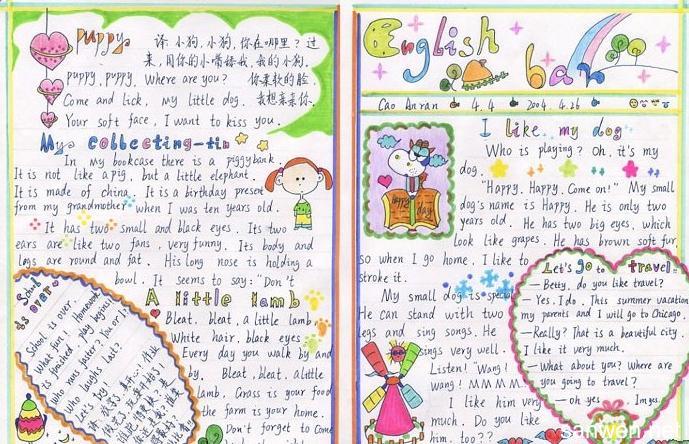 puppy
译: 小狗, 小狗, 你在哪里? 过
来, 用你的小嘴舔我, 我的小狗,
puppy, puppy, Where are you? 你柔软的脸,
Come and lick, my little dog. 我想亲亲你.
Your soft face, I want to kiss you.
My collecting-tin
In my bookcase there is a piggybank.
It is not like a pig, but a little elephant.
It is made of china. It is a birthday present
from my grandmother when I was ten years old.
It has two small and black eyes. Its two
ears are like two fans, very funny. Its body and
legs are round and fat. His long nose is holding a
bowl. It seems to say: "Don't
School is over
School is over.
What fun! Homework
is finished, play begins!
Who runs faster? You or I?
Who laughs last?
Let's try!
A little lamb
Bleat, bleat, a little lamb
White hair, black eyes
Every day you walk by and
by. Bleat, bleat, a little
lamb. Grass is your food
the farm is your home.
Don't forget to come
English bar
Cao Anran 4.4 2004.4.26
I like my dog
Who is playing? Oh, it's my
dog.
"Happy, Happy. Come on!" My small
dog's name is Happy. He is only two
years old. He has two big eyes, which
look like grapes. He has brown soft fur,
so when I go home, I like to
stroke it.
My small dog is special
He can stand with two
legs and sing songs. He
sings very well.
Listen! "Wang!
wang! MMMM
I like him very
much. Do you like
him, too??
happy day
Let's go to travel!
– Betty, do you like travel?
– Yes, I do. This summer vacation
my parents and I will go to Chicago.
– Really? That is a beautiful city.
I like it very much.
– What about you? Where are
you going to travel?
– oh yes
sanwen.net